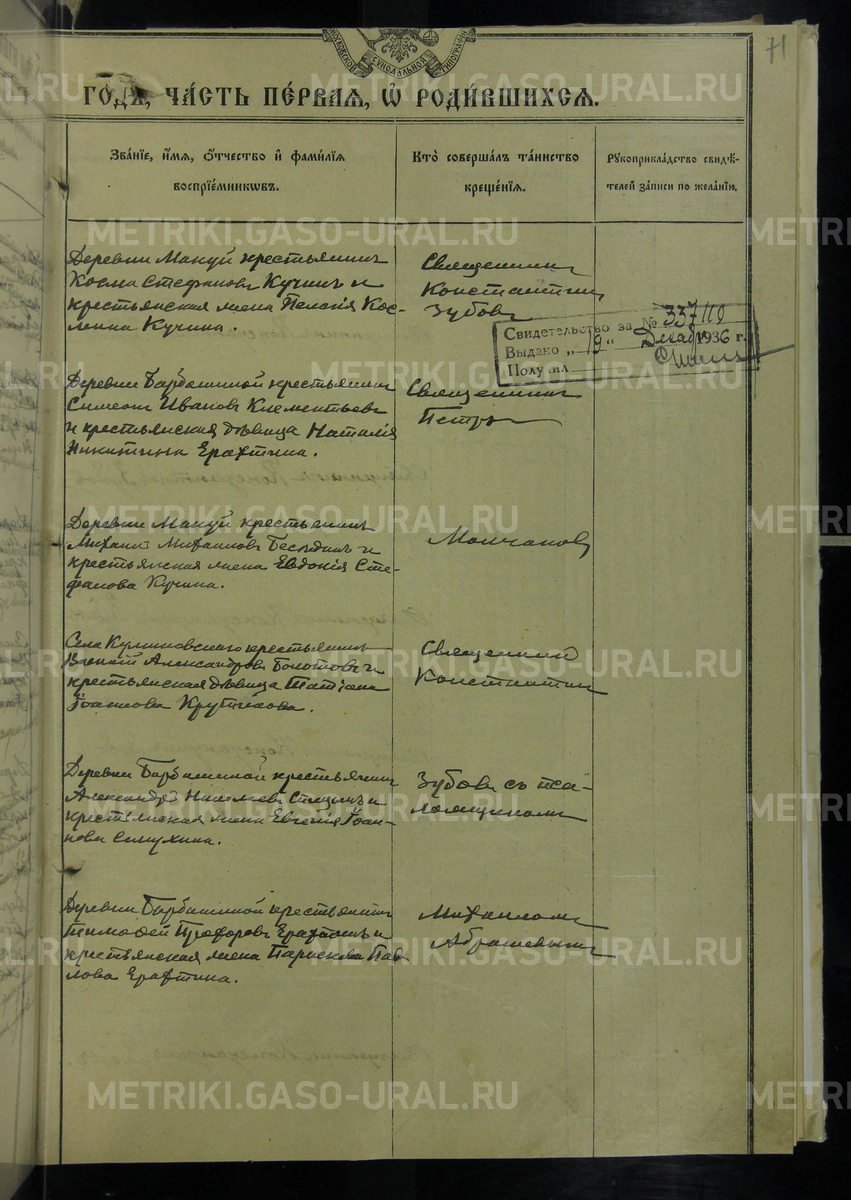 МОСКОВСКОЙ СУНОДАЛЬНОЙ ТИПОГРАФІИ
71
ГОДА, ЧАСТЬ ПЕРВАЯ, Ѡ РОДИВШИХСЯ.
Званіе, имя, отчество и фамилія
воспріемниковъ.
Кто совершалъ таинство
крещенія.
Рукоприкладство свидѣ-
телей записи по желанію.
Деревни Макуй крестьянинъ
Косма Стефановъ Кучинъ и
крестьянская жена Пелагія Кос-
мина Кучина.
Священникъ
Константинъ
Зубовъ
Свидетельство за № 337/110
Выдано „19“ Декаб 1936 г.
Получил
Деревни Барбашиной крестьянинъ
Симеонъ Ивановъ Клементьевъ
и крестьянская дѣвица Наталія
Никитина Ерахтина.
Священникъ
Петръ
Деревни Макуй крестьянинъ
Михаилъ Михаиловъ Бесѣдинъ и
крестьянская жена Евдокія Сте-
фанова Кучина.
Молчановъ
Села Куликовскаго крестьянинъ
Александровъ Болотовъ и
крестьянская дѣвица Татіана
Іоаннова Крутикова.
Священникъ
Константинъ
Деревни Барбашиной крестьянинъ
Александръ и
крестьянская жена Евгенія Іоан-
нова
Зубовъ съ пса-
ломщикомъ
Деревни Барбашиной крестьянинъ
Тимофей Прохоровъ Ерахтинъ и
крестьянская жена Параскева Пав-
лова Ерахтина.
Михаиломъ
Абрашевымъ
METRIKI.GASO-URAL.RU